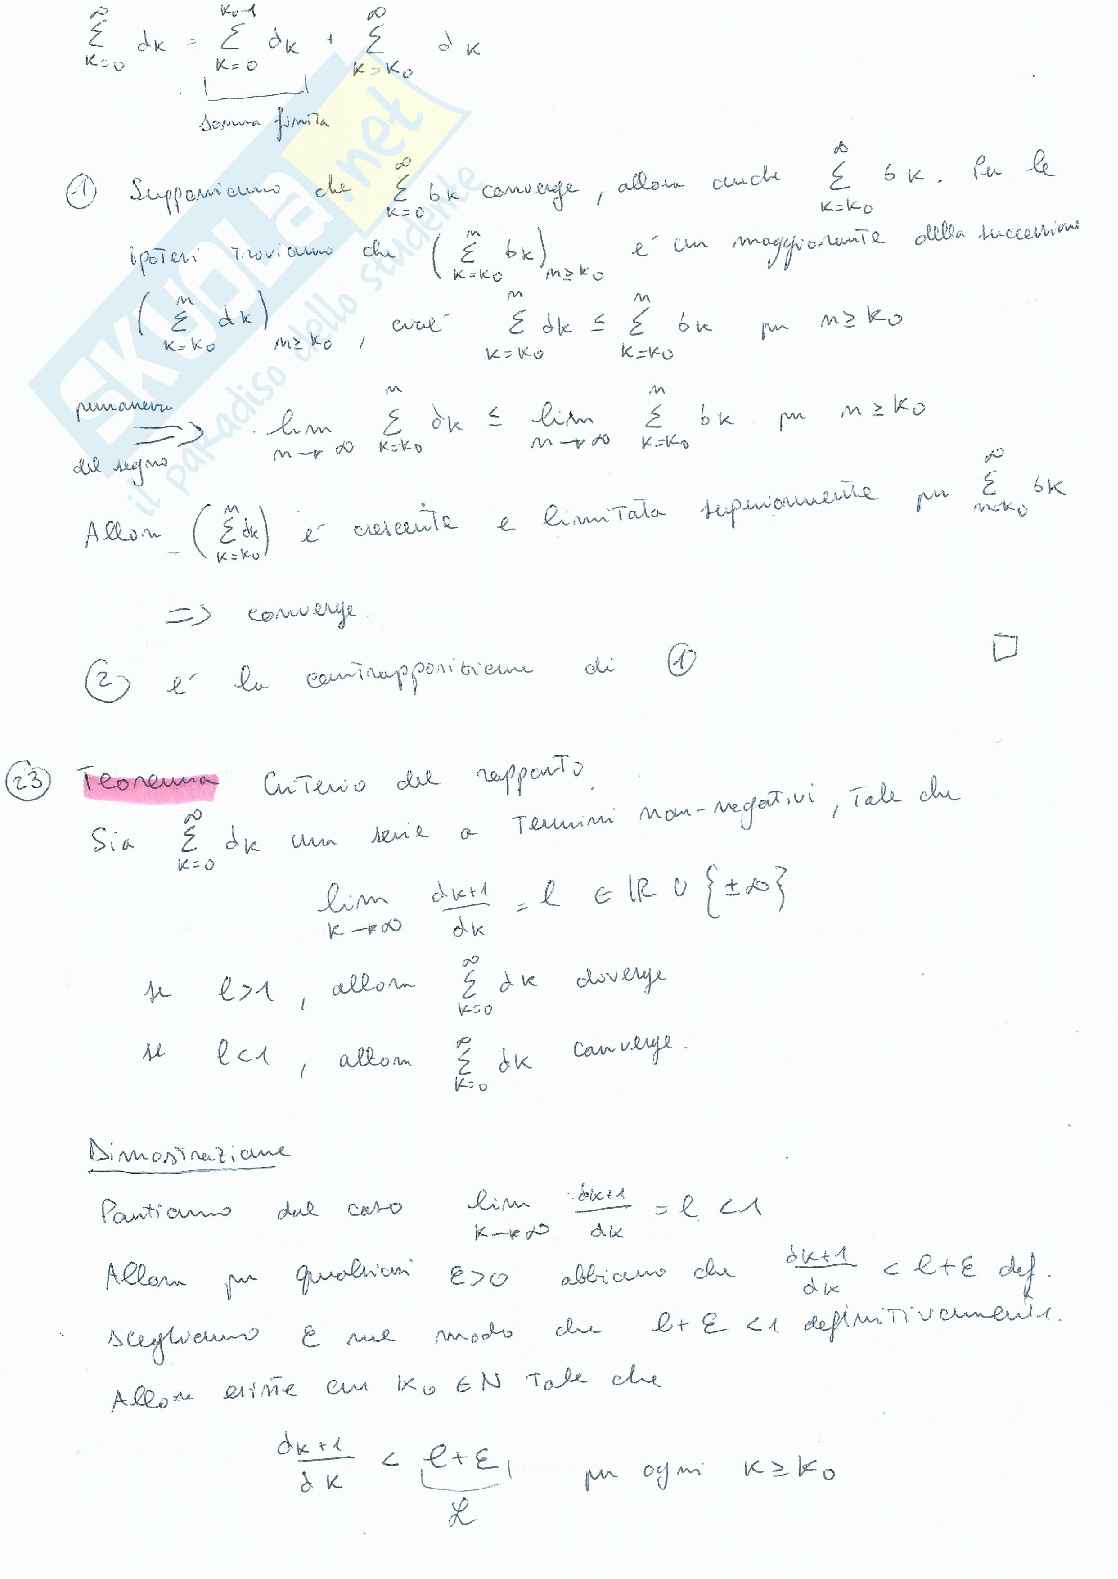 ∞ Σ k=0 dk = k0-1 Σ k=0 dk + ∞ Σ k≥k0 dk
somma finita
① Supponiamo che ∞ Σ k=0 bk converge, allora anche ∞ Σ k=k0 bk. Per le
ipotesi troviamo che (n Σ k=k0 bk) n≥k0 è un maggiorante della successione
(n Σ k=k0 dk) n≥k0, cioè n Σ k=k0 dk ≤ n Σ k=k0 bk per n≥k0
permanenza
del segno
=> lim n→∞ n Σ k=k0 dk ≤ lim n→∞ n Σ k=k0 bk per n≥k0
Allora (n Σ k=k0 dk) è crescente e limitata superiormente per ∞ Σ n=k0 bk
=> converge.
② è la contrapposizione di ① □
㉓ Teorema Criterio del rapporto.
Sia ∞ Σ k=0 dk una serie a termini non-negativi, tale che
lim k→∞ dk+1/dk = l ∈ ℝ ∪ {±∞}
se l>1, allora ∞ Σ k=0 dk doverge
se l<1, allora ∞ Σ k=0 dk converge.
Dimostrazione
Partiamo dal caso lim k→∞ dk+1/dk = l <1
Allora per qualsiasi ε>0 abbiamo che dk+1/dk < l+ε def.
scegliamo ε nel modo che l+ε <1 definitivamente.
Allora esiste un k0 ∈ N tale che
dk+1/dk < l+ε, per ogni k≥k0
ℒ
SKUOLA.net
il paradiso dello studente